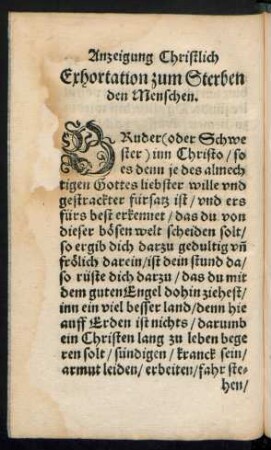 Anzeigung Christlich
Exhortation zum Sterben
den Menschen.
BRuder (oder Schwe
ster) inn Christo / so
es denn je des almech
tigen Gottes liebster wille vnd
gestrackter fürsatz ist / vnd ers
fürs best erkennet / das du von
dieser bösen welt scheiden solt /
so ergib dich darzu gedultig vñ
frölich darein / ist dein stund da /
so rüste dich darzu / das du mit
dem guten Engel dohin ziehest /
inn ein viel besser land / denn hie
auff Erden ist nichts / darumb
ein Christen lang zu leben bege
ren solt / sündigen / kranck sein /
armut leiden / erbeiten / fahr ste-
hen /